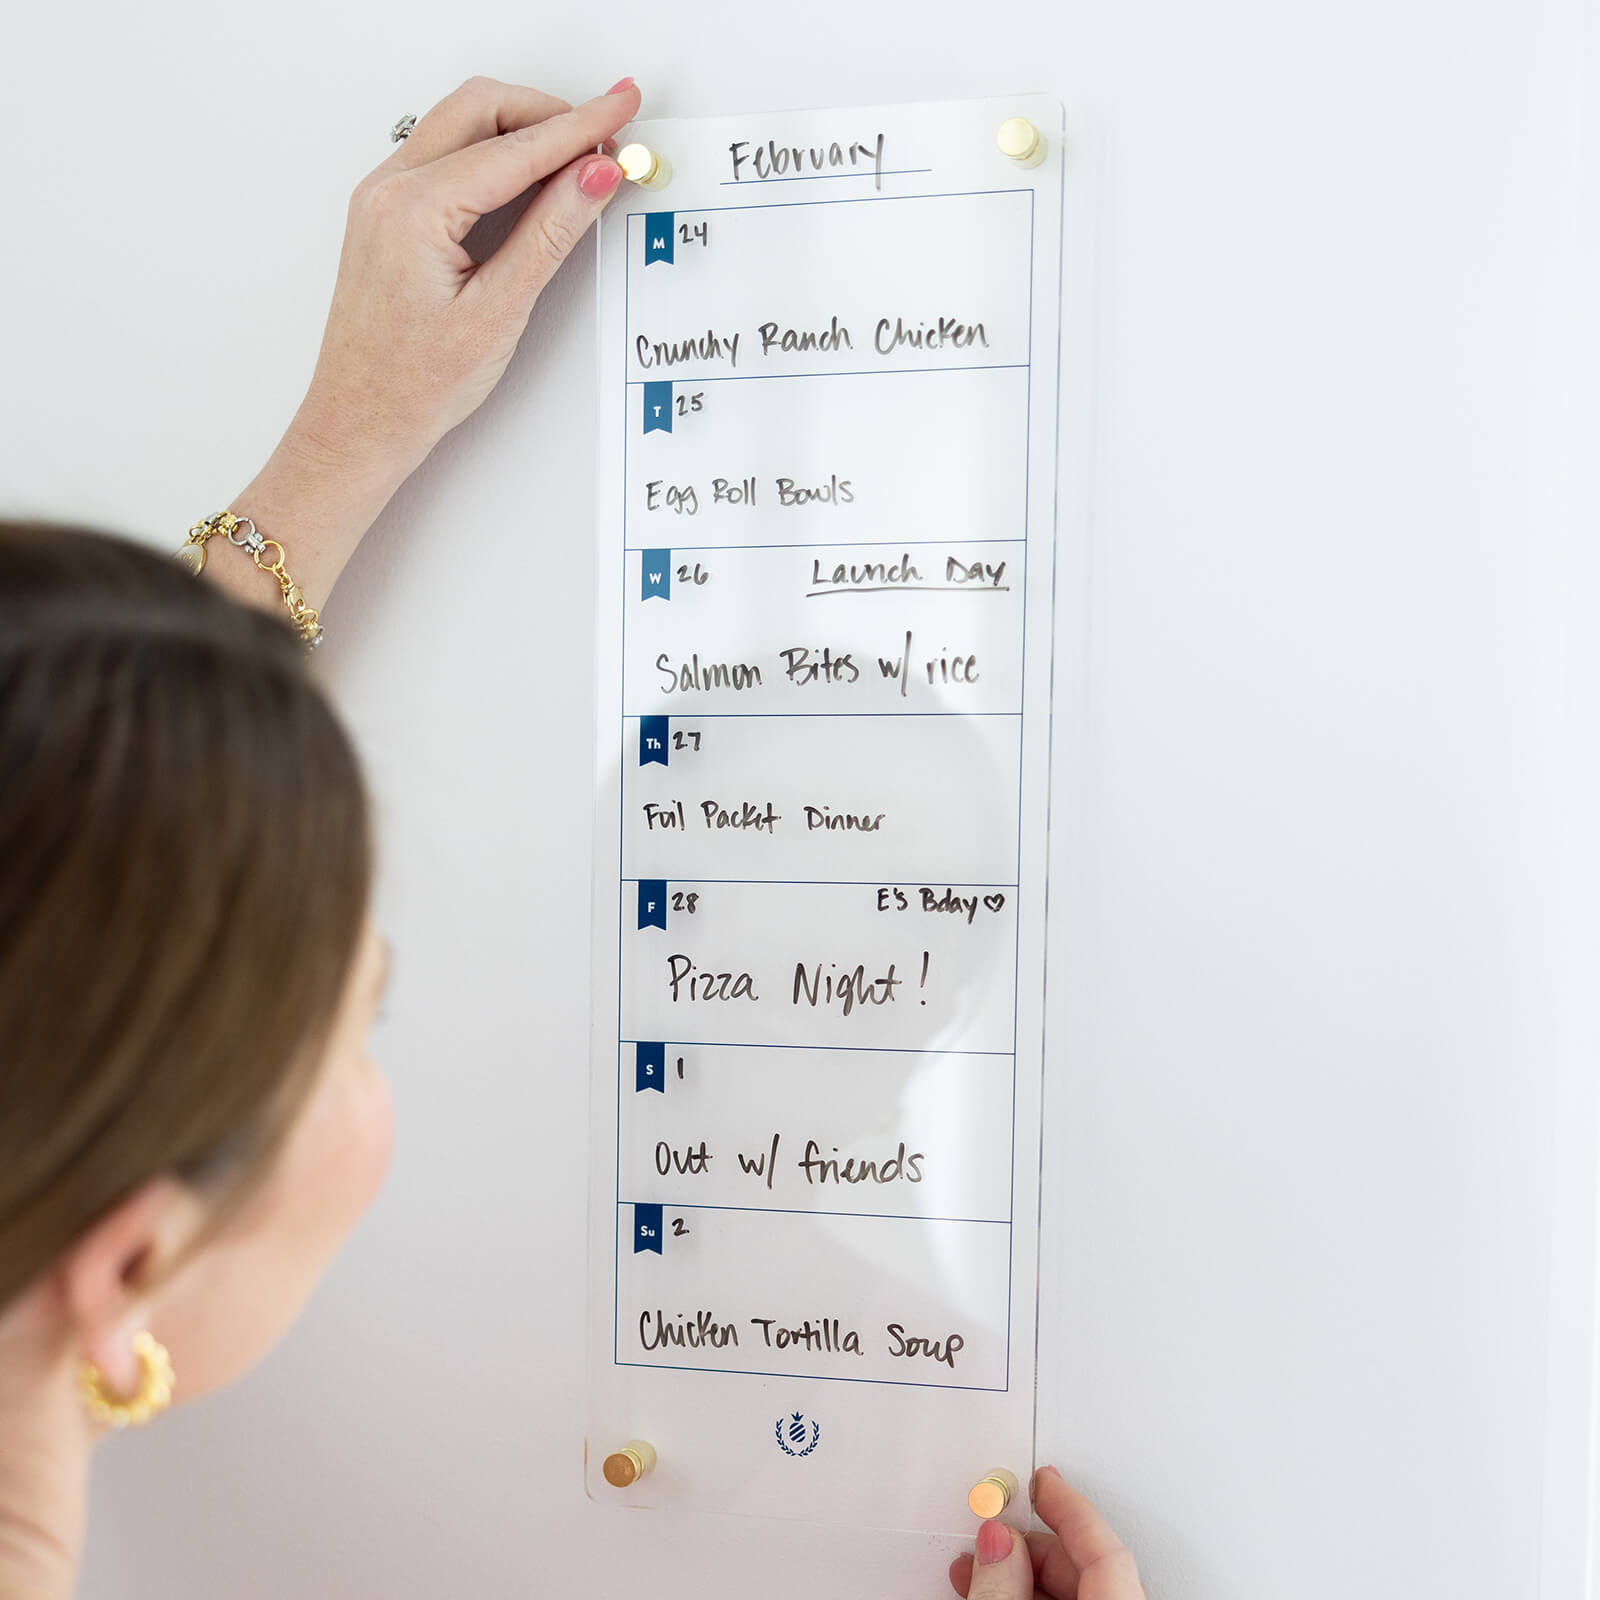 February
M 24
Crunchy Ranch Chicken
T 25
Egg Roll Bowls
W 26 Launch Day
Salmon Bites w/ rice
Th 27
Foil Packet Dinner
F 28 E's Bday ♡
Pizza Night!
S 1
Out w/ friends
Su 2
Chicken Tortilla Soup